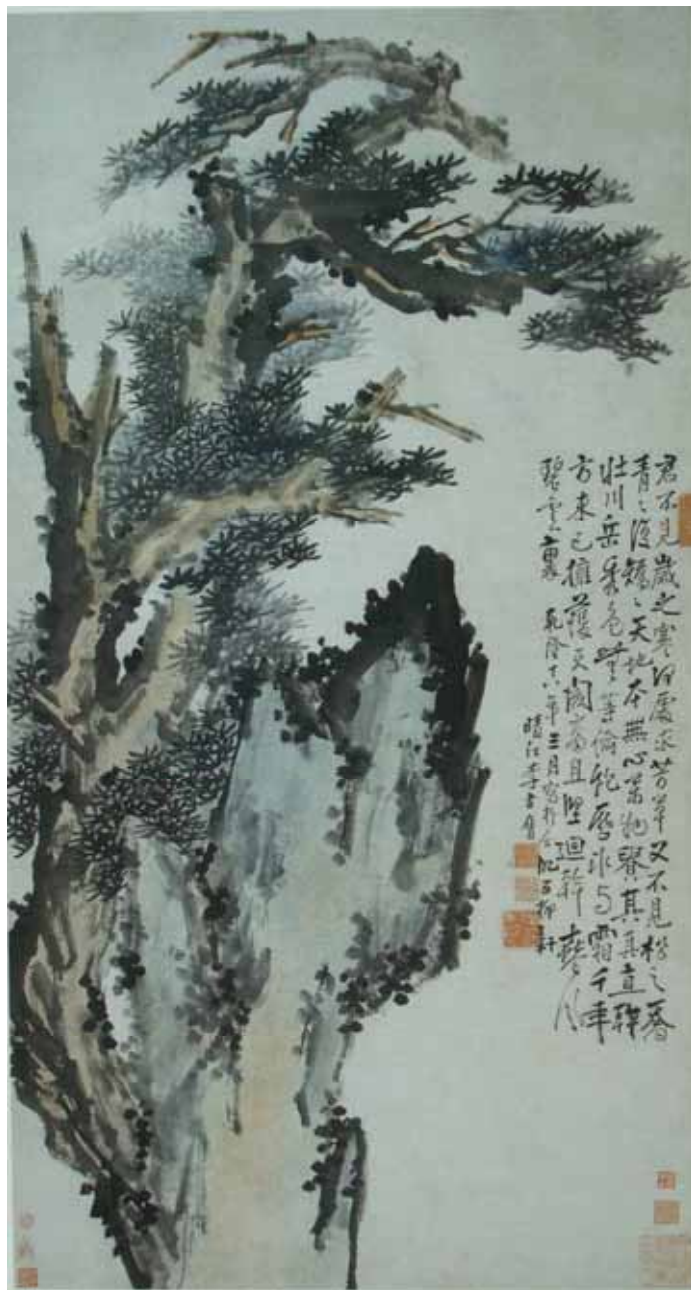 君不見歲之寒何處求芳草又不見松之喬
青〻復矯〻天地本無心萬物貴其真直幹
壯川岳秀色無等倫飽歷冰與霜千年
方未已擁護天闕高且堅迴幹春風
碧雲裏 乾隆十八年三月寫於合肥五柳軒
晴江李方膺